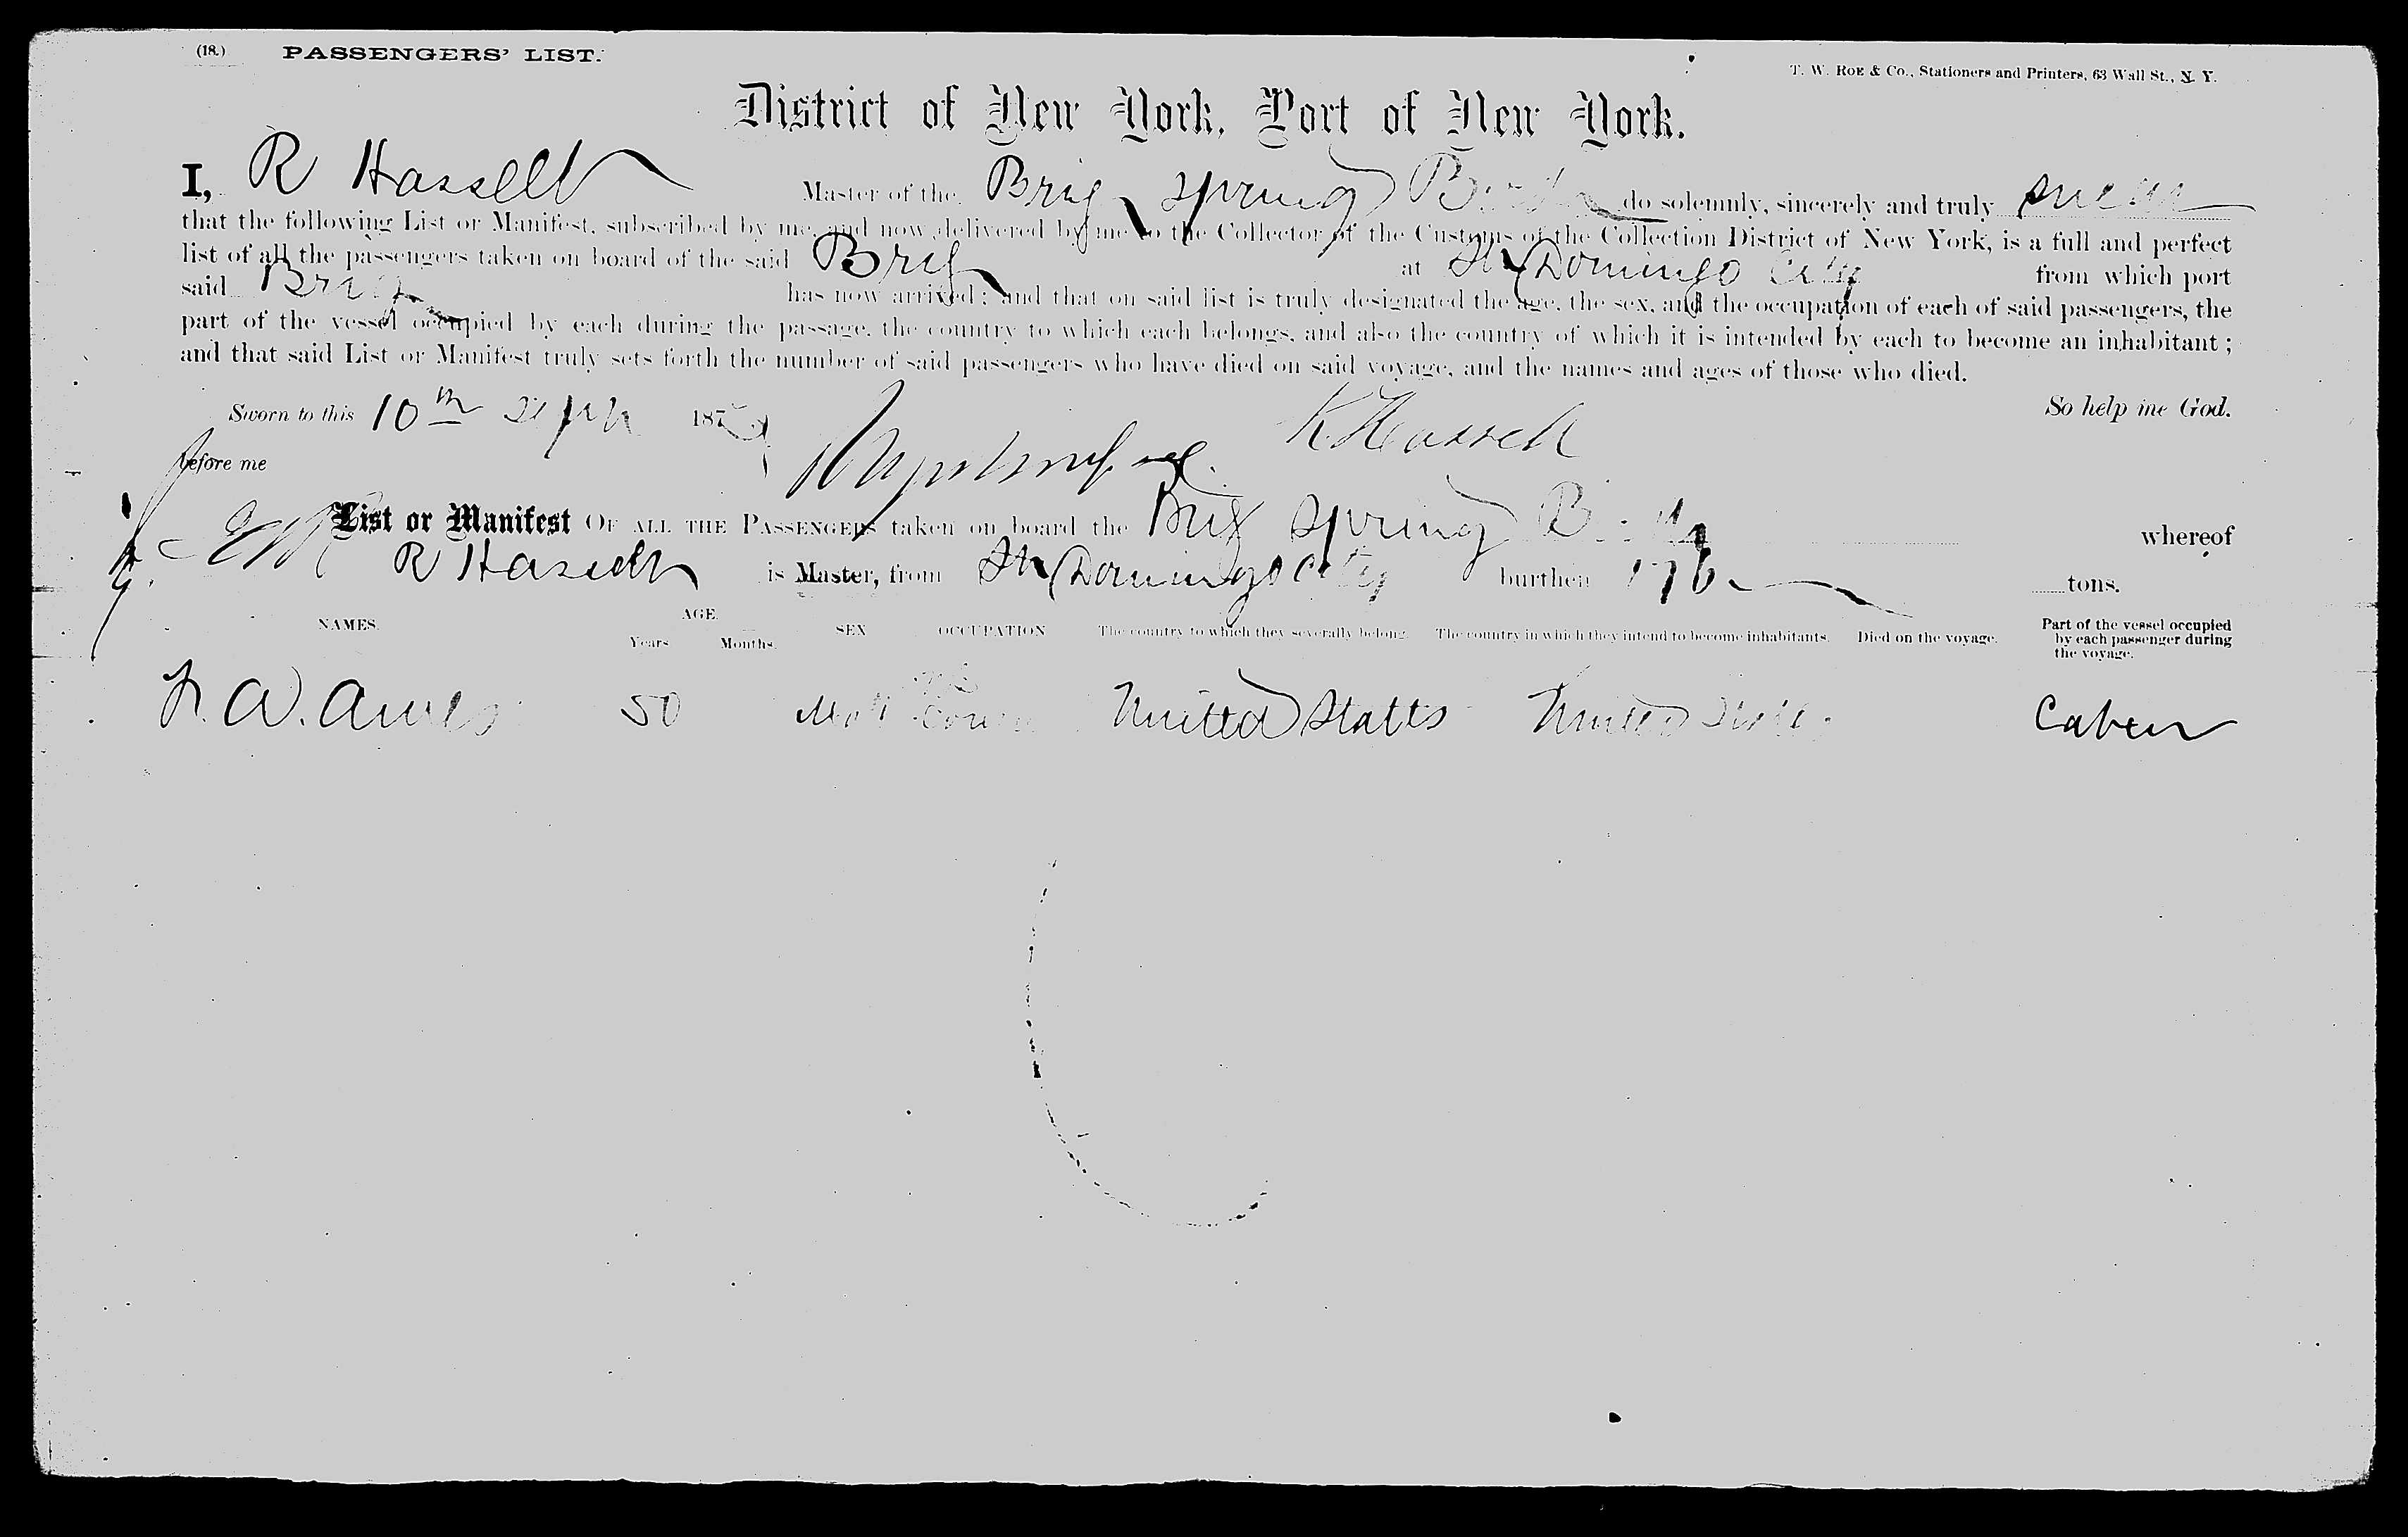 (18.) PASSENGERS' LIST.
T. W. ROE & Co., Stationers and Printers, 63 Wall St., N. Y.
District of New York, Port of New York.
I, R Hassell Master of the Brig Spring Bird do solemnly, sincerely and truly swear
that the following List or Manifest, subscribed by me, and now delivered by me to the Collector of the Customs of the Collection District of New York, is a full and perfect
list of all the passengers taken on board of the said Brig at St Domingo City from which port
said Brig has now arrived; and that on said list is truly designated the age, the sex, and the occupation of each of said passengers, the
part of the vessel occupied by each during the passage, the country to which each belongs, and also the country of which it is intended by each to become an inhabitant;
and that said List or Manifest truly sets forth the number of said passengers who have died on said voyage, and the names and ages of those who died.
Sworn to this 10th Sept 187 So help me God.
R Hassell
before me
List or Manifest OF ALL THE PASSENGERS taken on board the Brig Spring Bird whereof
R Hassell is Master, from St Domingo City burthen 176 tons.
NAMES. AGE. Years Months. SEX OCCUPATION The country to which they severally belong. The country in which they intend to become inhabitants. Died on the voyage. Part of the vessel occupied by each passenger during the voyage.
W. Ames 50 Male United States United States Cabin